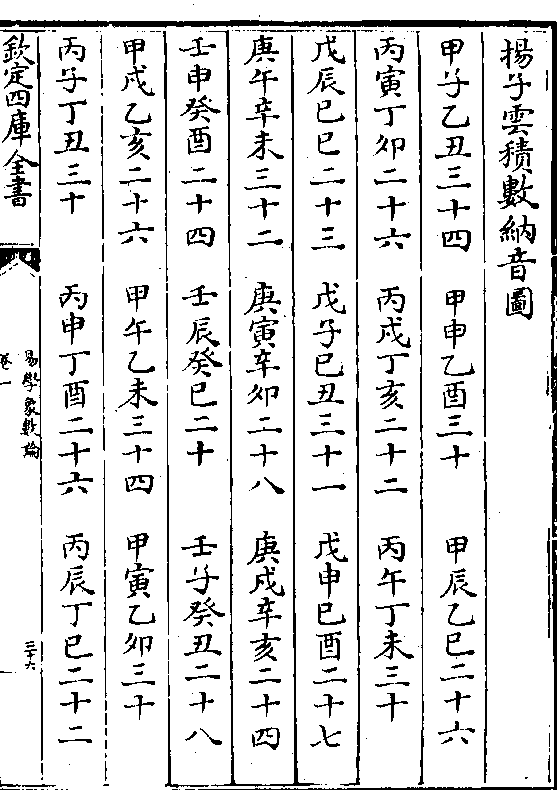 揚子雲積數納音圖
甲子乙丑三十四　甲申乙酉三十　甲辰乙巳二十六
丙寅丁卯二十六　丙戌丁亥二十二　丙午丁未三十
戊辰己巳二十三　戊子己丑三十一　戊申己酉二十七
庚午辛未三十二　庚寅辛卯二十八　庚戌辛亥二十四
壬申癸酉二十四　壬辰癸巳二十　壬子癸丑二十八
甲戌乙亥二十六　甲午乙未三十四　甲寅乙卯三十
丙子丁丑三十　丙申丁酉二十六　丙辰丁巳二十二
欽定四庫全書
易學象數論
卷一
三十六